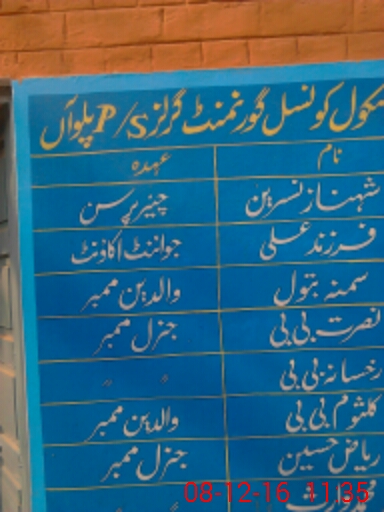 سکول کونسل گورنمنٹ گرلز P/S پلوآں
نام عہدہ
شہناز نسرین چیئر پرسن
فرزند علی جوائنٹ اکاؤنٹ
سمنہ بتول والدین ممبر
نصرت بی بی جنرل ممبر
رخسانہ بی بی " "
کلثوم بی بی والدین ممبر
ریاض حسین جنرل ممبر
محمد وارث "
08-12-16 11:35